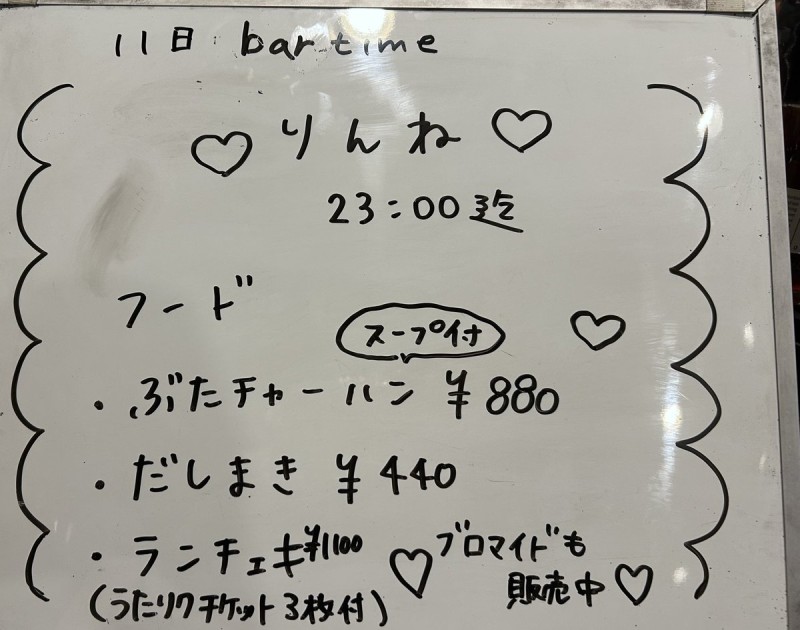 11日 bar time
♡ りんね ♡
23:00迄
フード
スープ付
・ぶたチャーハン ¥880
・だしまき ¥440
・ランチェキ¥1100
(うたリクチケット3枚付)
♡ブロマイドも
販売中♡